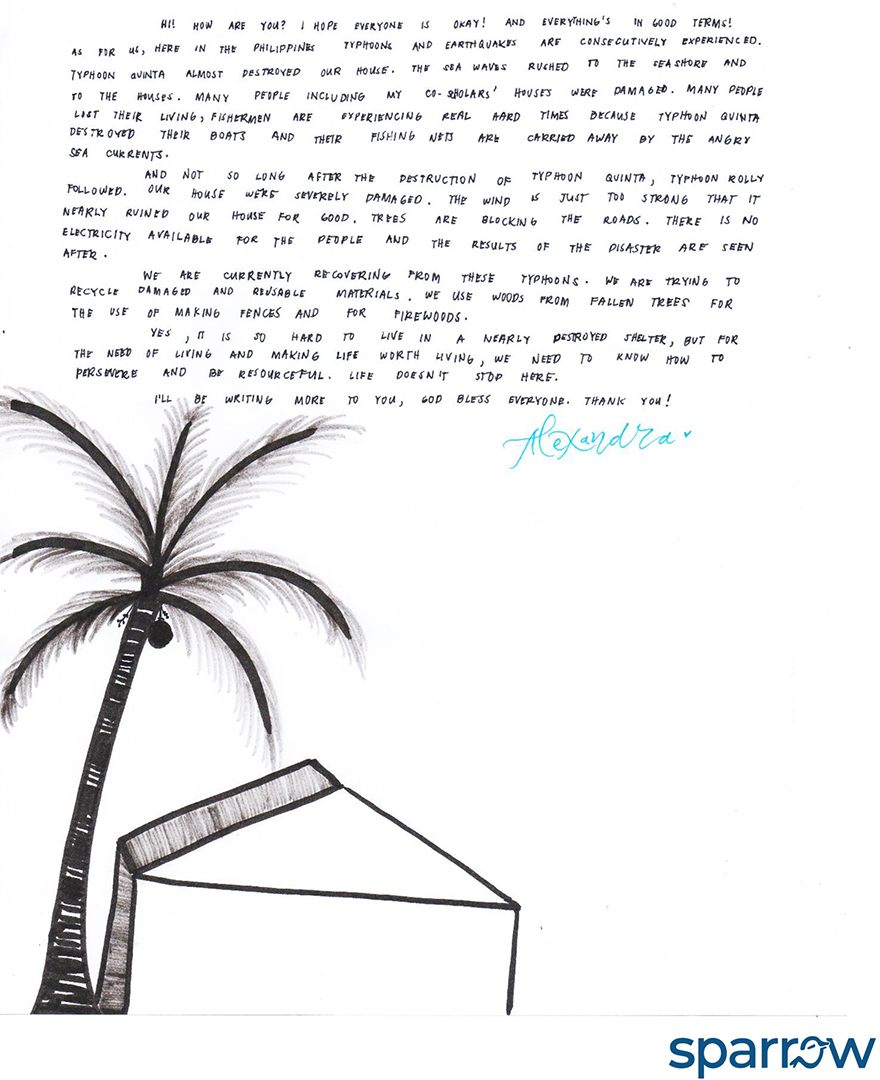 HI! HOW ARE YOU? I HOPE EVERYONE IS OKAY! AND EVERYTHING'S IN GOOD TERMS!
AS FOR US, HERE IN THE PHILIPPINES TYPHOONS AND EARTHQUAKES ARE CONSECUTIVELY EXPERIENCED.
TYPHOON QUINTA ALMOST DESTROYED OUR HOUSE. THE SEA WAVES RUSHED TO THE SEASHORE AND
TO THE HOUSES. MANY PEOPLE INCLUDING MY CO-SCHOLARS' HOUSES WERE DAMAGED. MANY PEOPLE
LOST THEIR LIVING, FISHERMEN ARE EXPERIENCING REAL HARD TIMES BECAUSE TYPHOON QUINTA
DESTROYED THEIR BOATS AND THEIR FISHING NETS ARE CARRIED AWAY BY THE ANGRY
SEA CURRENTS.
AND NOT SO LONG AFTER THE DESTRUCTION OF TYPHOON QUINTA, TYPHOON ROLLY
FOLLOWED. OUR HOUSE WERE SEVERELY DAMAGED. THE WIND IS JUST TOO STRONG THAT IT
NEARLY RUINED OUR HOUSE FOR GOOD. TREES ARE BLOCKING THE ROADS. THERE IS NO
ELECTRICITY AVAILABLE FOR THE PEOPLE AND THE RESULTS OF THE DISASTER ARE SEEN
AFTER.
WE ARE CURRENTLY RECOVERING FROM THESE TYPHOONS. WE ARE TRYING TO
RECYCLE DAMAGED AND REUSABLE MATERIALS. WE USE WOODS FROM FALLEN TREES FOR
THE USE OF MAKING FENCES AND FOR FIREWOODS.
YES, IT IS SO HARD TO LIVE IN A NEARLY DESTROYED SHELTER, BUT FOR
THE NEED OF LIVING AND MAKING LIFE WORTH LIVING, WE NEED TO KNOW HOW TO
PERSEVERE AND BE RESOURCEFUL. LIFE DOESN'T STOP HERE.
I'LL BE WRITING MORE TO YOU, GOD BLESS EVERYONE. THANK YOU!
Alexandra
sparrow